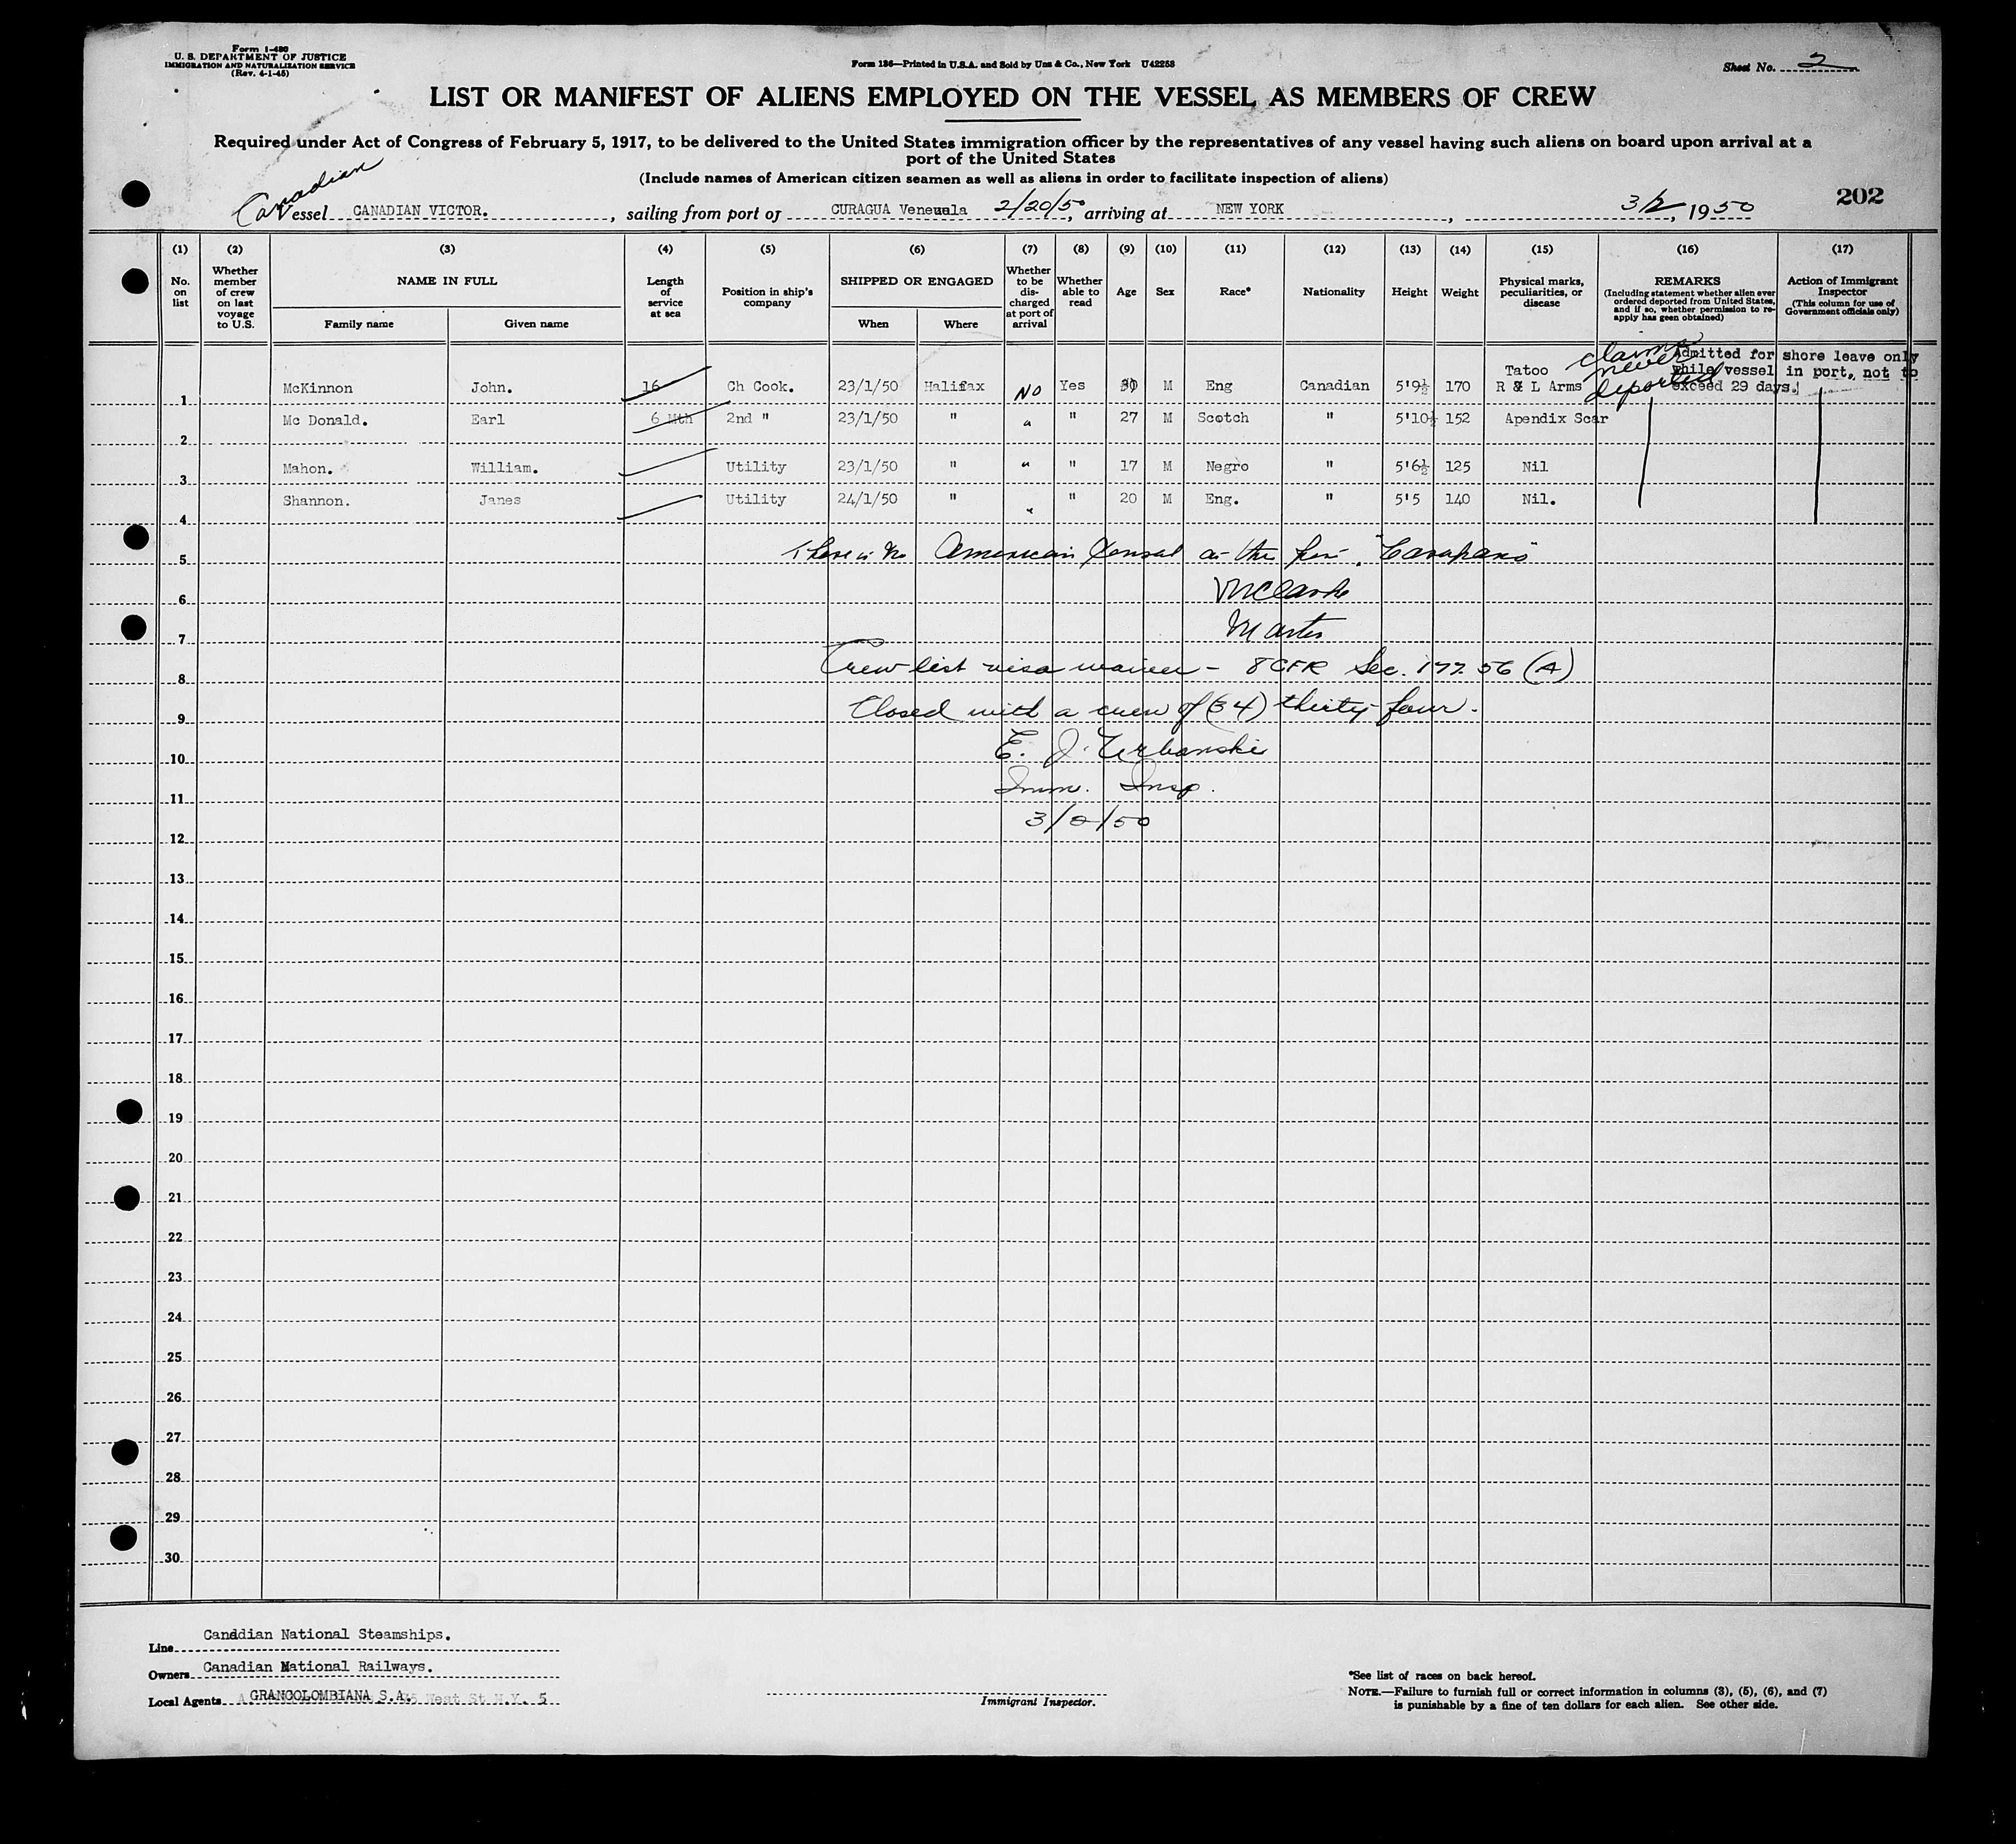 Form I-480
U. S. DEPARTMENT OF JUSTICE
IMMIGRATION AND NATURALIZATION SERVICE
(Rev. 4-1-45)
Form 136—Printed in U.S.A. and Sold by Unz & Co., New York U42258
Sheet No. 2
LIST OR MANIFEST OF ALIENS EMPLOYED ON THE VESSEL AS MEMBERS OF CREW
Required under Act of Congress of February 5, 1917, to be delivered to the United States immigration officer by the representatives of any vessel having such aliens on board upon arrival at a
port of the United States
(Include names of American citizen seamen as well as aliens in order to facilitate inspection of aliens)
Canadian
202
Vessel CANADIAN VICTOR. , sailing from port of CURAGUA 2/20/50, arriving at NEW YORK , 3/2, 1950
(1) (2) (3) (4) (5) (6) (7) (8) (9) (10) (11) (12) (13) (14) (15) (16) (17)
No. on list
Whether member of crew on last voyage to U.S.
NAME IN FULL
Family name Given name
Length of service at sea
Position in ship's company
SHIPPED OR ENGAGED
When Where
Whether to be discharged at port of arrival
Whether able to read
Age
Sex
Race*
Nationality
Height
Weight
Physical marks, peculiarities, or disease
REMARKS
(Including statement whether alien ever ordered deported from United States, and if so, whether permission to re-apply has geen obtained)
Action of Immigrant Inspector
(This column for use of Government officials only)
claims never deported
Admitted for shore leave only
while vessel in port, not to
exceed 29 days.
1 McKinnon John. 16 Ch Cook. 23/1/50 Halifax No Yes M Eng Canadian 5'9½ 170 Tatoo R & L Arms
2 Mc Donald. Earl 6 Mth 2nd " 23/1/50 " " " 27 M Scotch " 5'10½ 152 Apendix Scar
3 Mahon. William. Utility 23/1/50 " " " 17 M Negro " 5'6½ 125 Nil
4 Shannon. Janes Utility 24/1/50 " " " 20 M Eng. " 5'5 140 Nil.
5 There is no American Consul at the port
6
7 Master
8 Crew list visa waiver - 8 CFR Sec. 177.56 (A)
9 Closed with a crew of (34) thirty-four.
10 E. J. Urbanski
11 Imm. Insp.
12 3/2/50
13
14
15
16
17
18
19
20
21
22
23
24
25
26
27
28
29
30
Line Canadian National Steamships.
Owners Canadian National Railways.
Local Agents GRANCOLOMBIANA S.A. West St N.Y. 5
Immigrant Inspector.
*See list of races on back hereof.
NOTE.—Failure to furnish full or correct information in columns (3), (5), (6), and (7)
is punishable by a fine of ten dollars for each alien. See other side.